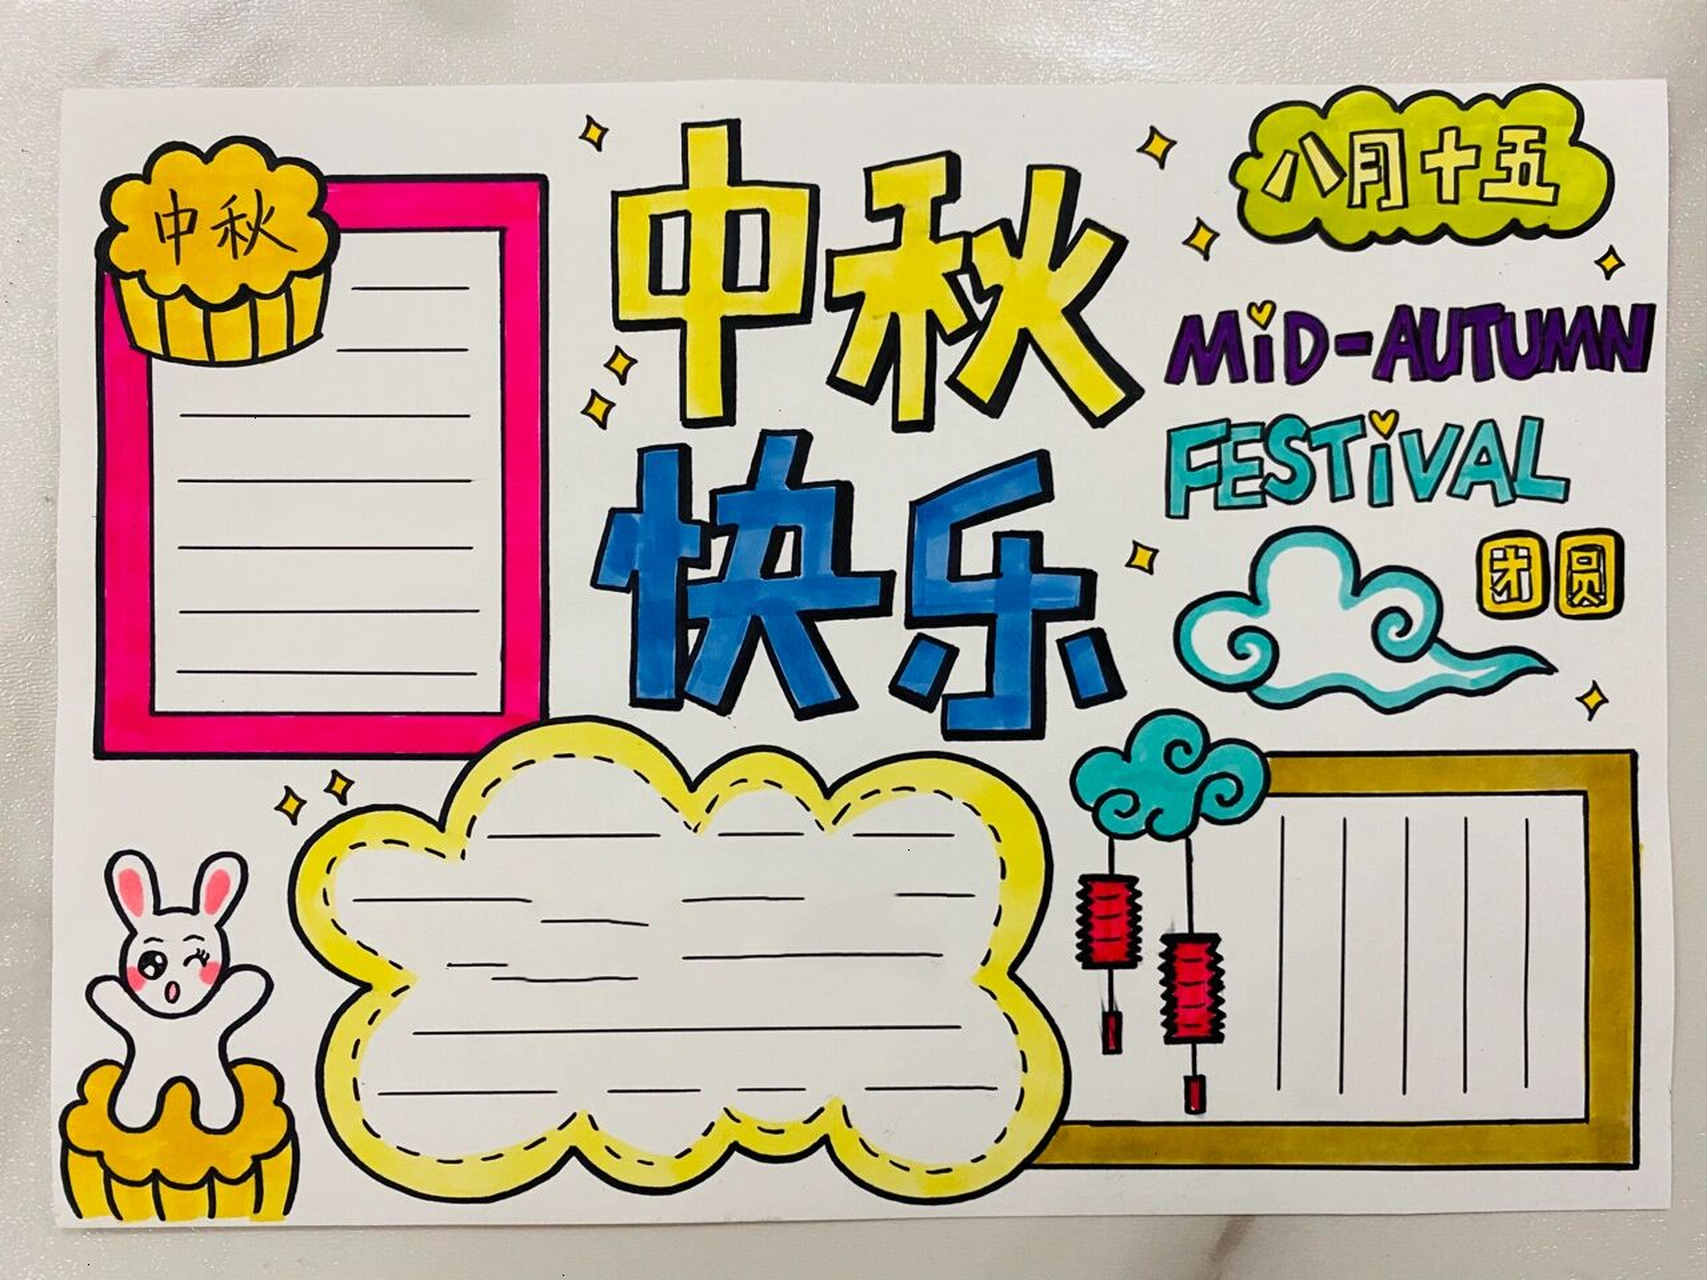 中秋
中秋
快乐
八月十五
MiD-AUTUMN
FESTiVAL
团圆